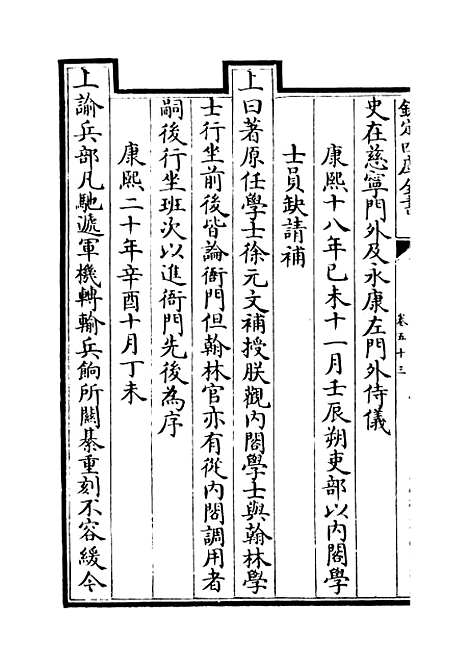 欽定四庫全書
卷五十三
史在慈寧門外及永康左門外侍儀
康熙十八年己未十一月壬辰朔吏部以內閣學
士員缺請補
上曰著原任學士徐元文補授朕觀內閣學士與翰林學
士行坐前後皆論衙門但翰林官亦有從內閣調用者
嗣後行坐班次以進衙門先後為序
康熙二十年辛酉十月丁未
上諭兵部凡馳遞軍機轉輸兵餉所關綦重刻不容緩今